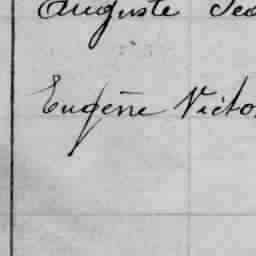 Auguste
Eugène Victo